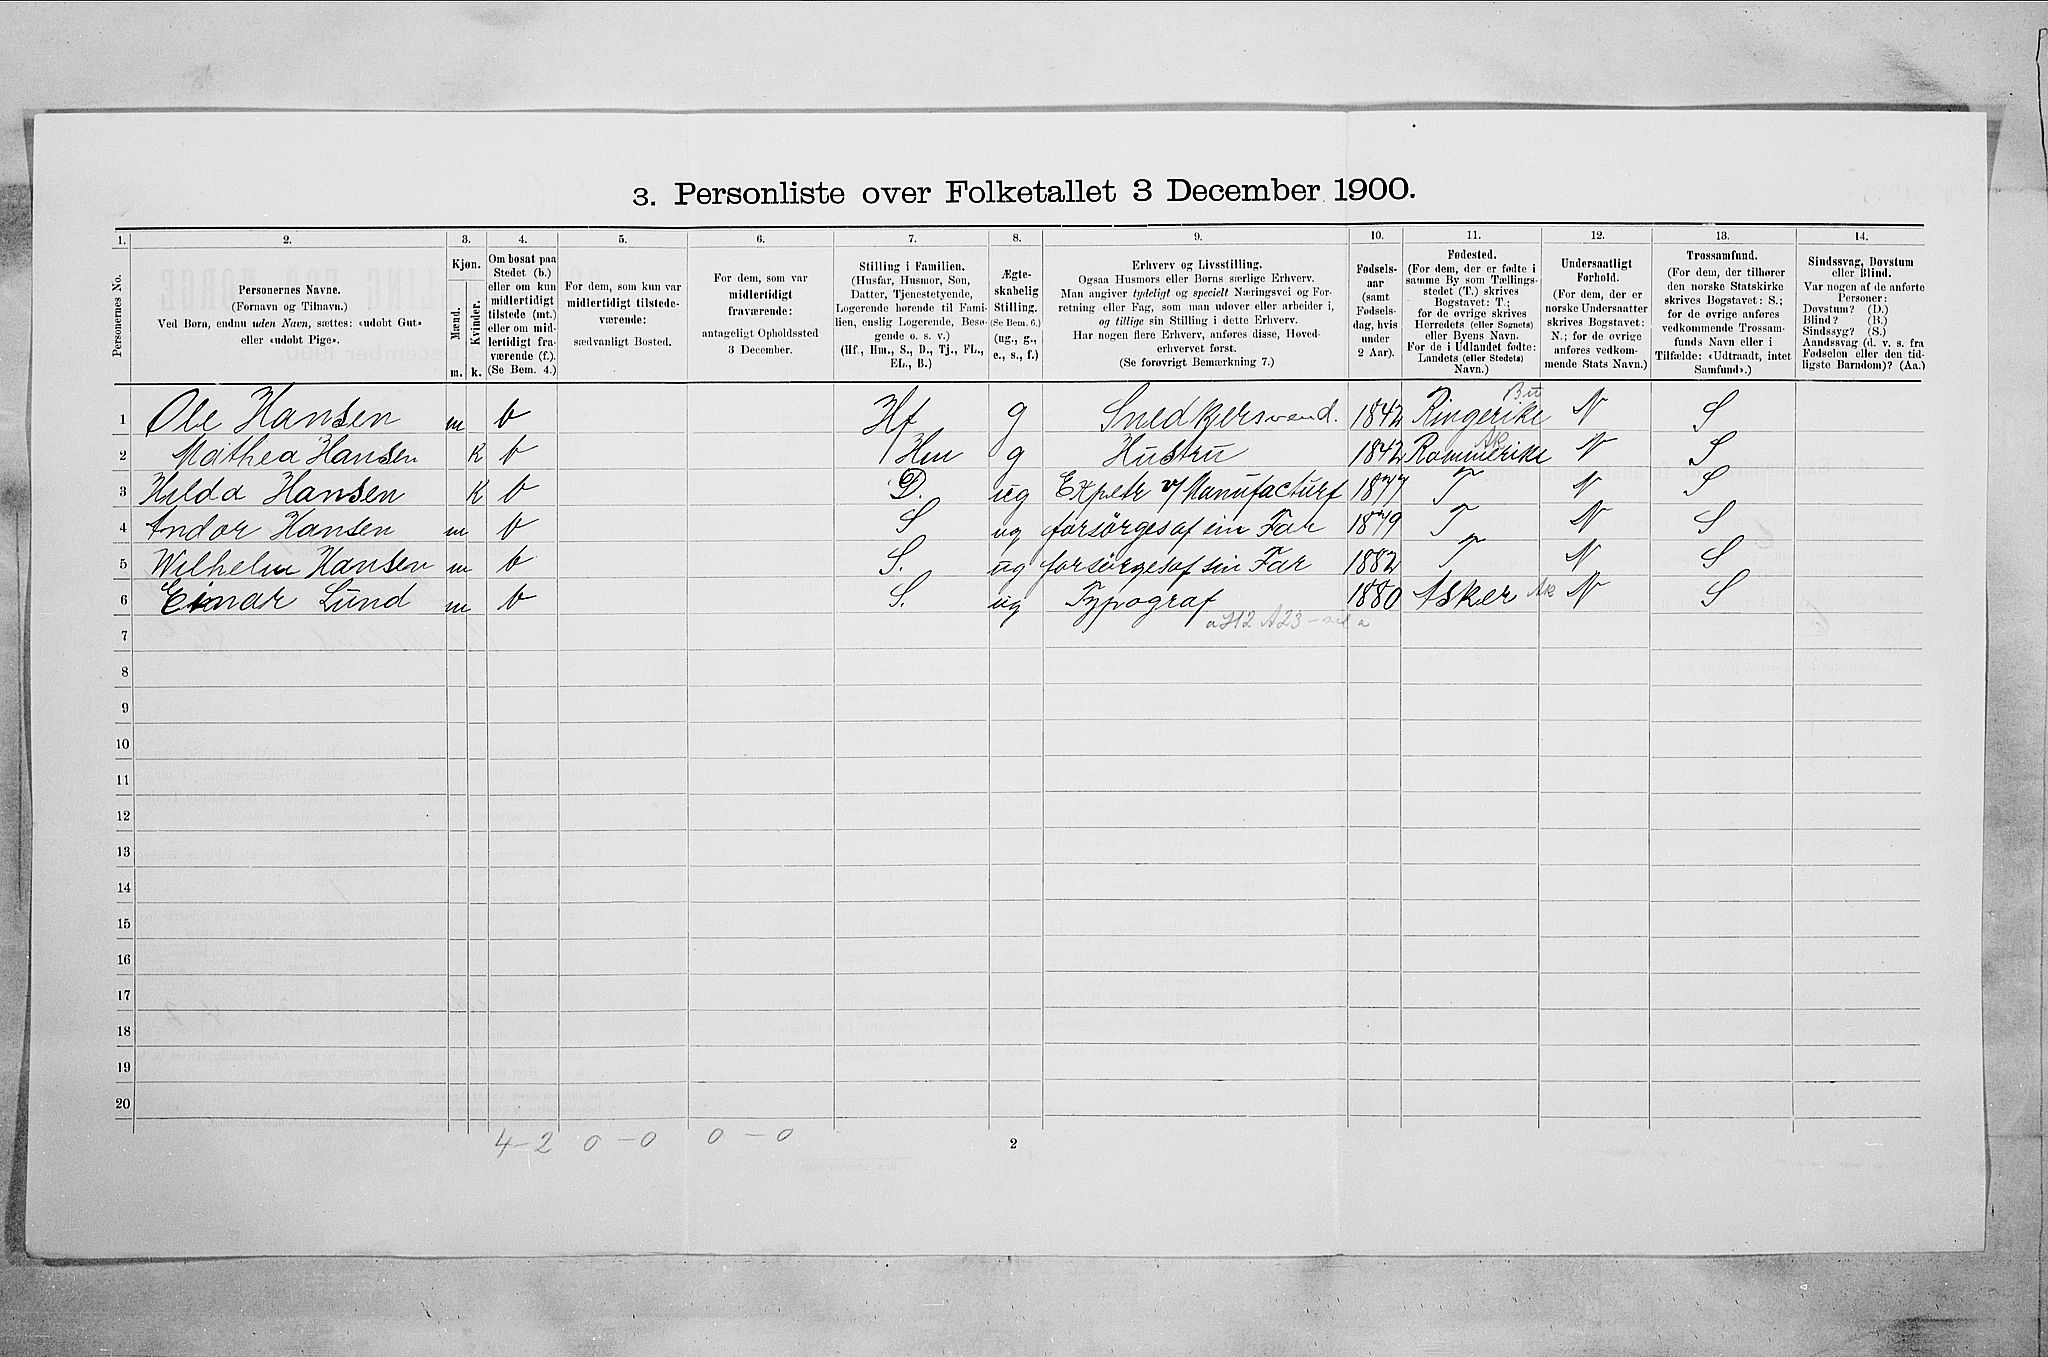 3. Personliste over Folketallet 3 December 1900.
1. 2. 3. 4. 5. 6. 7. 8. 9. 10. 11. 12. 13. 14.
Personernes No.
Personernes Navne.
(Fornavn og Tilnavn.)
Ved Børn, endnu uden Navn, sættes: «udøbt Gut»
eller «udøbt Pige».
Kjøn.
Mænd.
Kvinder.
m. k.
Om bosat paa
Stedet (b.)
eller om kun
midlertidigt
tilstede (mt.)
eller om mid-
lertidigt fra-
værende (f.).
(Se Bem. 4.)
For dem, som kun var
midlertidigt tilstede-
værende:
sædvanligt Bosted.
For dem, som var
midlertidigt
fraværende:
antageligt Opholdssted
3 December.
Stilling i Familien.
(Husfar, Husmor, Søn,
Datter, Tjenestetyende,
Logerende hørende til Fami-
lien, enslig Logerende, Besø-
gende o. s. v.)
(Hf., Hm., S., D., Tj., FL.,
EL., B.)
Ægte-
skabelig
Stilling.
(Se Bem. 6.)
(ug., g.,
e., s., f.)
Erhverv og Livsstilling.
Ogsaa Husmors eller Børns særlige Erhverv.
Man angiver tydeligt og specielt Næringsvei og For-
retning eller Fag, som man udøver eller arbeider i,
og tillige sin Stilling i dette Erhverv.
Har nogen flere Erhverv, anføres disse, Hoved-
erhvervet først.
(Se forøvrigt Bemærkning 7.)
Fødsels-
aar
(samt
Fødsels-
dag, hvis
under
2 Aar).
Fødested.
(For dem, der er fødte i
samme By som Tællings-
stedet (T.) skrives
Bogstavet: T.;
for de øvrige skrives
Herredets (eller Sognets)
eller Byens Navn.
For de i Udlandet fødte:
Landets (eller Stedets)
Navn.)
Undersaatligt
Forhold.
(For dem, der er
norske Undersaatter
skrives Bogstavet:
N.; for de øvrige
anføres vedkom-
mende Stats Navn.)
Trossamfund.
(For dem, der tilhører
den norske Statskirke
skrives Bogstavet: S.;
for de øvrige anføres
vedkommende Trossam-
funds Navn eller i
Tilfælde: «Udtraadt, intet
Samfund».)
Sindssvag, Døvstum
eller Blind.
Var nogen af de anførte
Personer:
Døvstum? (D.)
Blind? (B.)
Sindssyg? (S.)
Aandssvag (d. v. s. fra
Fødselen eller den tid-
ligste Barndom)? (Aa.)
1 Ole Hansen m b Hf g Snedkersvend. 1842 Ringerike Bu N S
2 Mathea Hansen K b Hm g Hustru 1842 Rommerike Ak N S
3 Hilda Hansen K b D. ug Expetr v/ Manufacturf 1877 T N S
4 Andor Hansen m b S ug forsørges af sin Far 1879 T N S
5 Wilhelm Hansen m b S. ug forsørges af sin Far 1882 T N S
6 Einar Lund m b S. ug Typograf 1880 Asker Ak N S
7
8
9
10
11
12
13
14
15
16
17
18
19
20
4-2 0-0 0-0
2